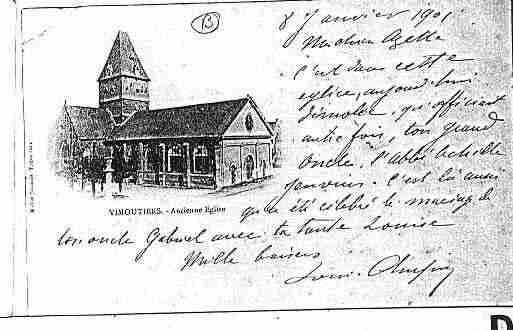 B
8 Janvier 1901
C'est dans cette
église, aujourd'hui
démolie, qu'officiait
autrefois, ton grand
oncle, l'abbé
C'est là aussi
VIMOUTIERS. - Ancienne Eglise
qu'a été célébré le mariage de
ton oncle Gabriel avec ta tante Louise
Mille baisers